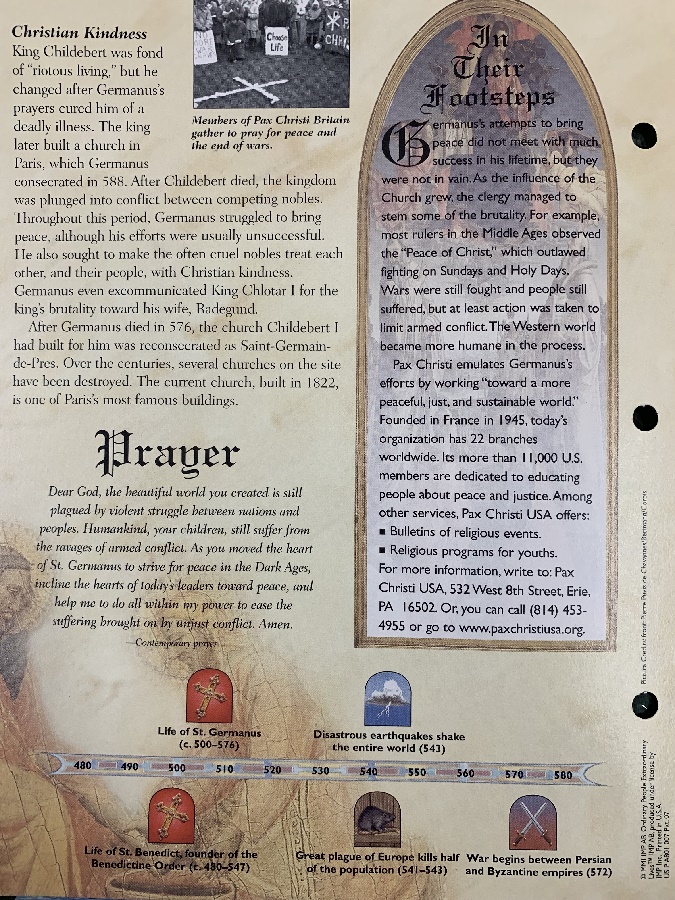 Christian Kindness
King Childebert was fond
of "riotous living," but he
changed after Germanus's
prayers cured him of a
deadly illness. The king
later built a church in
Paris, which Germanus
consecrated in 588. After Childebert died, the kingdom
was plunged into conflict between competing nobles.
Throughout this period, Germanus struggled to bring
peace, although his efforts were usually unsuccessful.
He also sought to make the often cruel nobles treat each
other, and their people, with Christian kindness.
Germanus even excommunicated King Chlotar I for the
king's brutality toward his wife, Radegund.
After Germanus died in 576, the church Childebert I
had built for him was reconsecrated as Saint-Germain-
de-Pres. Over the centuries, several churches on the site
have been destroyed. The current church, built in 1822,
is one of Paris's most famous buildings.
Choose
Life
Members of Pax Christi Britain
gather to pray for peace and
the end of wars.
Prayer
Dear God, the beautiful world you created is still
plagued by violent struggle between nations and
peoples. Humankind, your children, still suffer from
the ravages of armed conflict. As you moved the heart
of St. Germanus to strive for peace in the Dark Ages,
incline the hearts of today's leaders toward peace, and
help me to do all within my power to ease the
suffering brought on by unjust conflict. Amen.
—Contemporary prayer
In
Their
Footsteps
Germanus's attempts to bring
peace did not meet with much
success in his lifetime, but they
were not in vain. As the influence of the
Church grew, the clergy managed to
stem some of the brutality. For example,
most rulers in the Middle Ages observed
the "Peace of Christ," which outlawed
fighting on Sundays and Holy Days.
Wars were still fought and people still
suffered, but at least action was taken to
limit armed conflict. The Western world
became more humane in the process.
Pax Christi emulates Germanus's
efforts by working "toward a more
peaceful, just, and sustainable world."
Founded in France in 1945, today's
organization has 22 branches
worldwide. Its more than 11,000 U.S.
members are dedicated to educating
people about peace and justice. Among
other services, Pax Christi USA offers:
▪ Bulletins of religious events.
▪ Religious programs for youths.
For more information, write to: Pax
Christi USA, 532 West 8th Street, Erie,
PA 16502. Or, you can call (814) 453-
4955 or go to www.paxchristiusa.org.
Life of St. Germanus
(c. 500–576)
Disastrous earthquakes shake
the entire world (543)
480 490 500 510 520 530 540 550 560 570 580
Life of St. Benedict, founder of the
Benedictine Order (c. 480–547)
Great plague of Europe kills half
of the population (541–543)
War begins between Persian
and Byzantine empires (572)